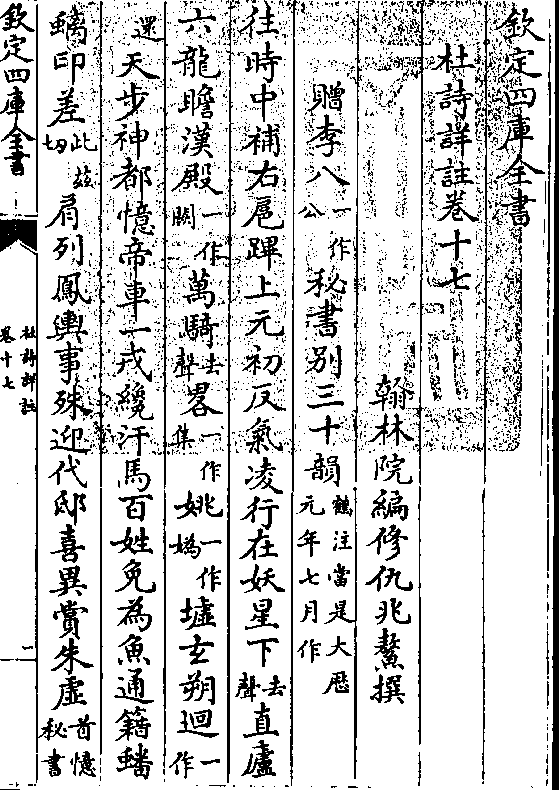 欽定四庫全書
杜詩詳註卷十七
翰林院編修仇兆鰲撰
贈李八一作公秘書別三十韻鶴注當是大厯元年七月作
往時中補右扈蹕上元初反氣凌行在妖星下去聲直廬
六龍瞻漢殿一作闕萬騎去聲畧一作集姚一作媯墟𤣥朔迴一作
還天步神都憶帝車一戎纔汗馬百姓免為魚通籍蟠
螭印差此兹切肩列鳳輿事殊迎代邸喜異賞朱虛首憶秘書
欽定四庫全書
杜詩詳註
卷十七
一